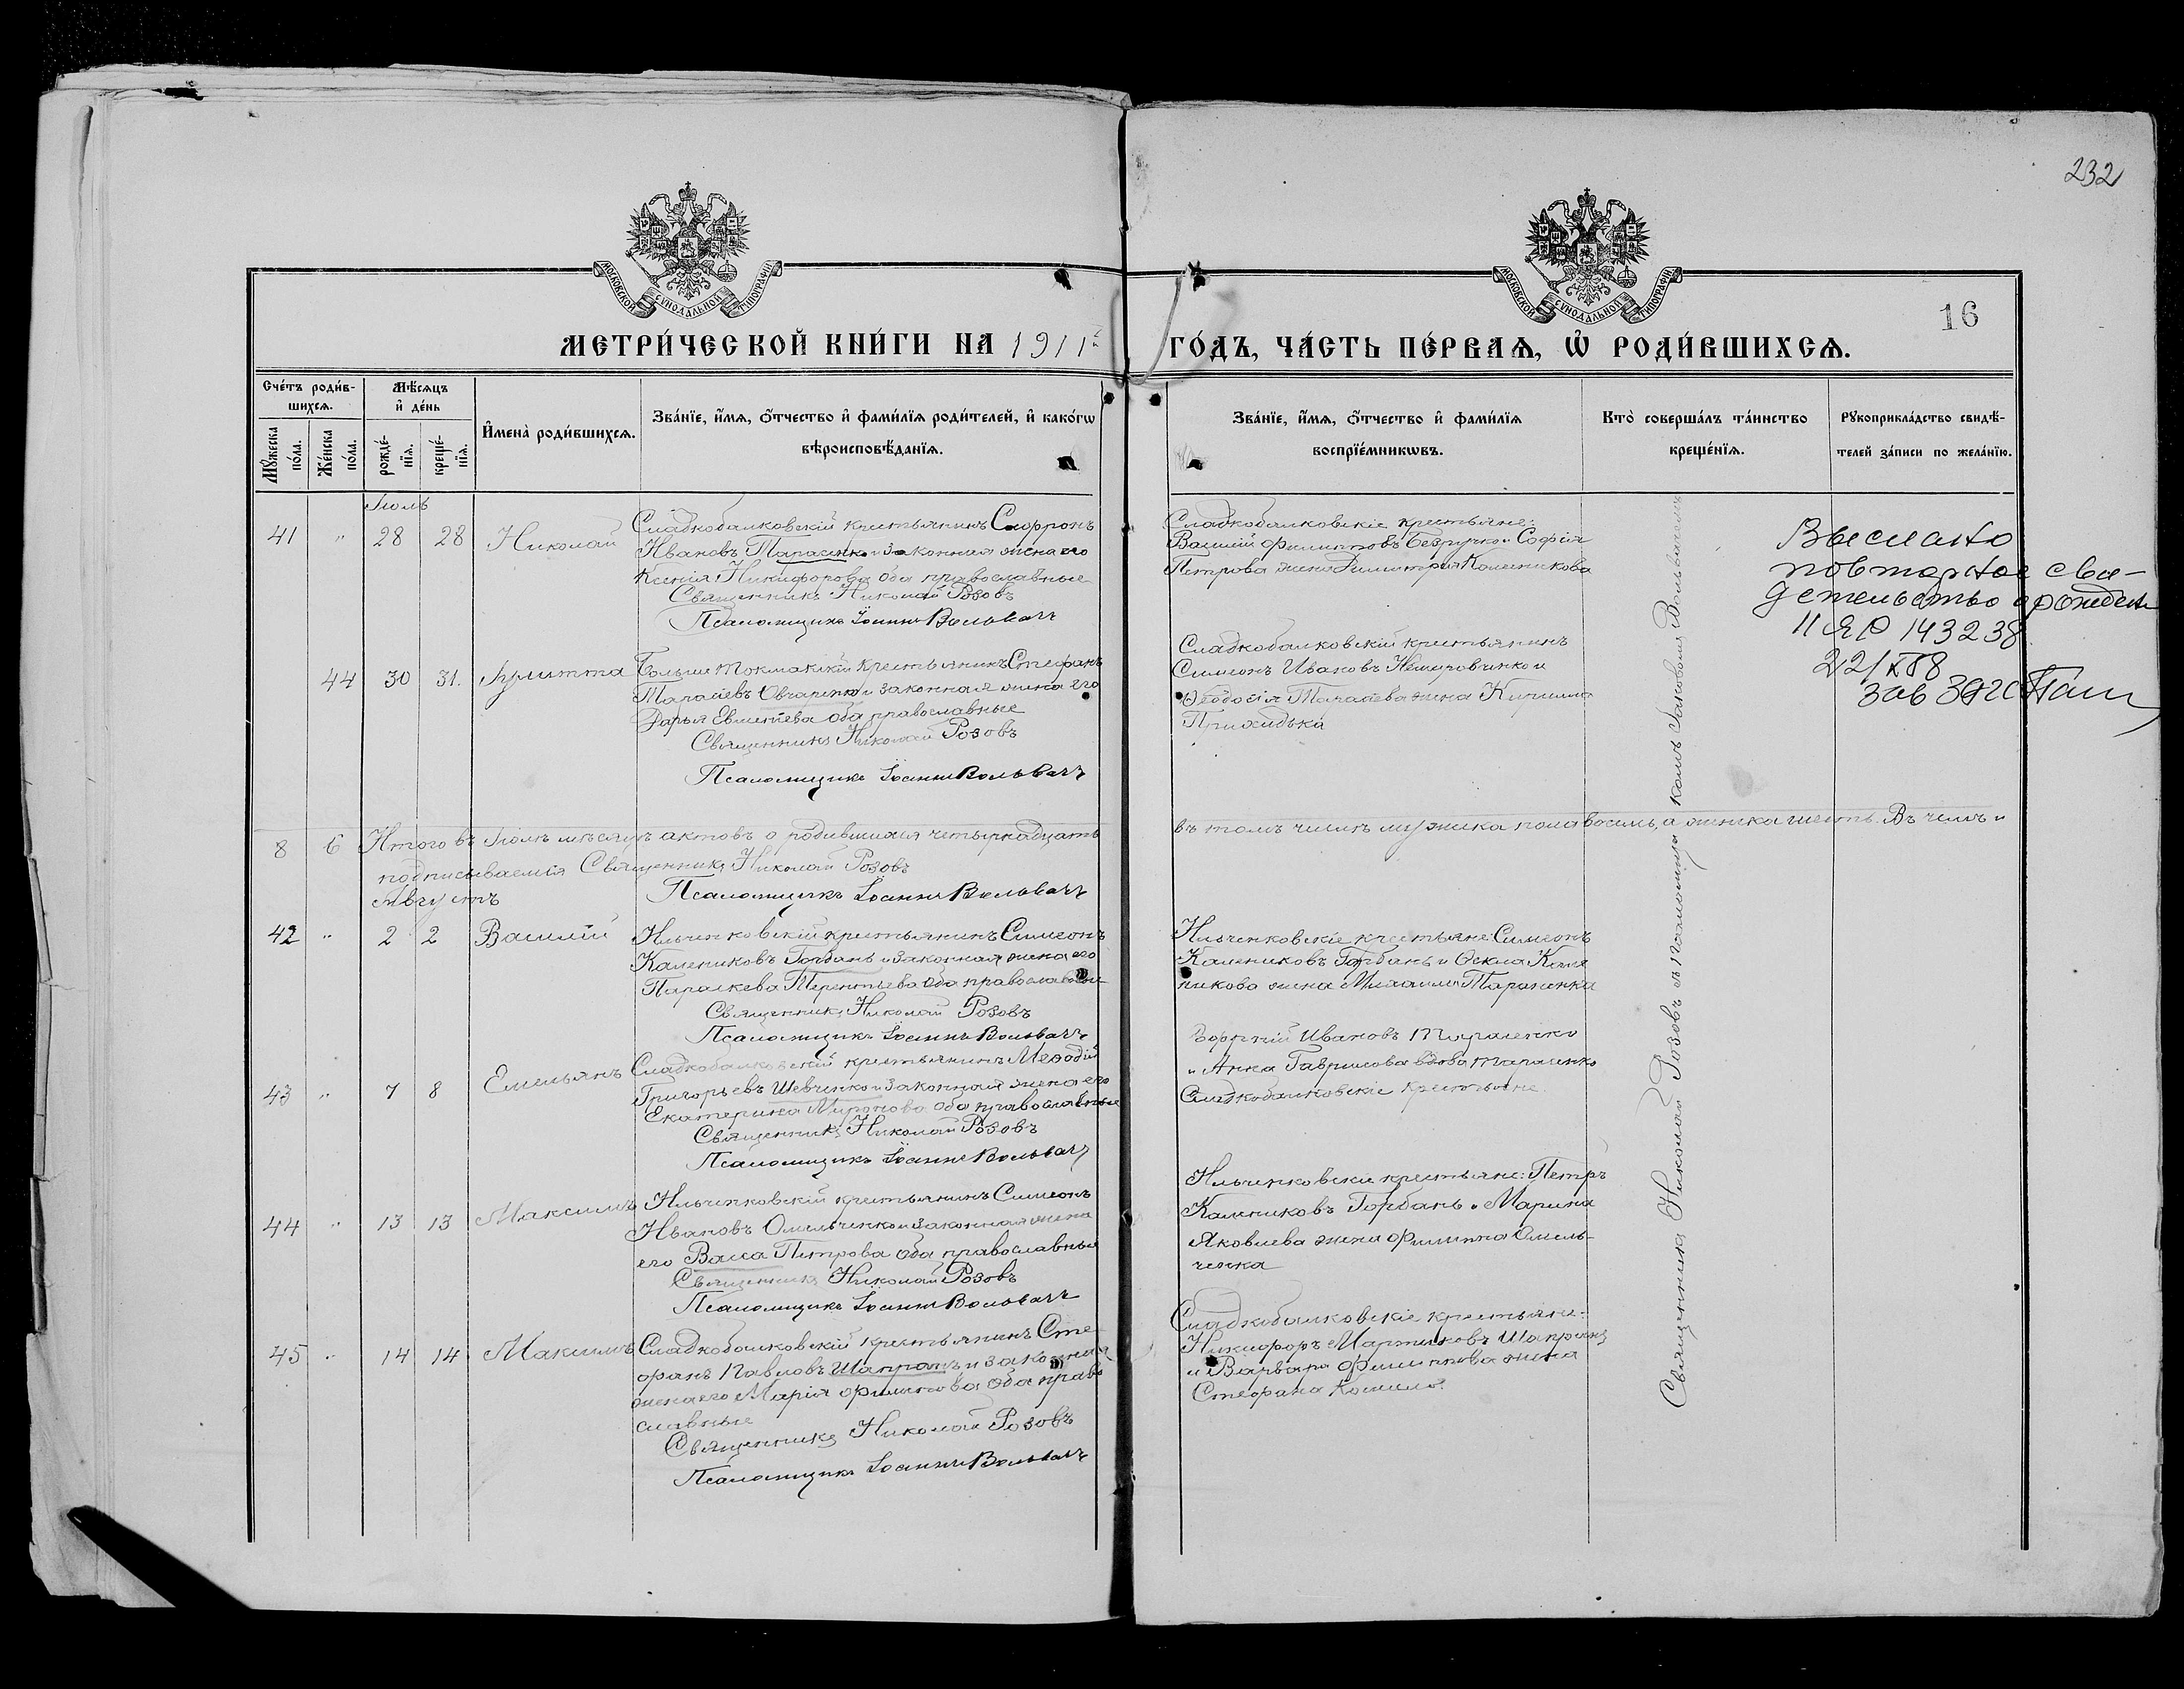 232
МОСКОВСКОЙ СѴНОДАЛЬНОЙ ТИПОГРАФІИ
МОСКОВСКОЙ СѴНОДАЛЬНОЙ ТИПОГРАФІИ
16
МЕТРИ́ЧЕСКОЙ КНИ́ГИ НА 1911 г. ГО́ДЪ, ЧА́СТЬ ПЕ́РВАѦ, Ѽ РОДИ́ВШИХСѦ.
Сче́тъ роди́вшихсѧ.
Мꙋ́жеска по́ла.
Же́нска по́ла.
Мѣ́сѧцъ и҆ де́нь
рожде́нїѧ.
креще́нїѧ.
И҆мена̀ роди́вшихсѧ.
Зва́нїе, и҆́мѧ, ѻ҆́тчество и҆ фами́лїѧ роди́телей, и҆ како́гѡ
вѣроисповѣ́данїѧ.
Зва́нїе, и҆́мѧ, ѻ҆́тчество и҆ фами́лїѧ
воспрїе́мникѡвъ.
Кто̀ соверша́лъ та́инство
креще́нїѧ.
Рꙋкоприкла́дство свидѣ́-
телей за́писи по жела́нїю.
Іюль
41 " 28 28 Николай
Сладкобалковскій крестьянинъ Софронъ
Ивановъ Тарасенко и законная жена его
Ксенія Никифорова оба православные
Священникъ Николай Розовъ
Псаломщикъ Іоаннъ Вольвачъ
Сладкобалковскіе крестьяне:
Василій Филипповъ Безручко и Софія
Петрова жена Димитрія Колесникова
Выслано
повторное сви-
детельство о рожден
II ЯР 143238
22/XI 58
зав ЗАГС
44 30 31. Іулитта
Больше Токмакскій крестьянинъ Стефанъ
Тарасіевъ Овчаренко и законная жена его
Дарья Евментева оба православные
Священникъ Николай Розовъ
Псаломщикъ Іоаннъ Вольвачъ
Сладкобалковскій крестьянинъ
Симеонъ Ивановъ Немировченко и
Ѳеодосія Тарасіева жена Кирилла
Приходька
8 6 Итого въ Іюлѣ мѣсяцѣ актовъ о родившихся четырнадцать въ томъ числѣ мужска пола восемь, а женска шесть. Въ чемъ и
подписываемся Священникъ Николай Розовъ
Псаломщикъ Іоаннъ Вольвачъ
Августъ
42 " 2 2 Василій
Ильченковскій крестьянинъ Симеонъ
Калениковъ Горбань и законная жена его
Параскева Терентьева оба православные
Священникъ Николай Розовъ
Псаломщикъ Іоаннъ Вольвачъ
Ильченковскіе крестьяне: Симеонъ
Калениковъ Горбань и Ѳекла Кале
никова жена Михаила Тараненка
43 " 7 8 Емельянъ
Сладкобалковскій крестьянинъ Меѳодій
Григорьевъ Шевченко и законная жена его
Екатерина Миронова оба православные
Священникъ Николай Розовъ
Псаломщикъ Іоаннъ Вольвачъ
Ивановъ Тарасенко
и Анна Гаврилова вдова Тарасенко
Сладкобалковскіе крестьяне
44 " 13 13 Максимъ
Ильченковскій крестьянинъ Симеонъ
Ивановъ Омельченко и законная жена
его Васса Петрова оба православные
Священникъ Николай Розовъ
Псаломщикъ Іоаннъ Вольвачъ
Ильченковскіе крестьяне: Петръ
Калениковъ Горбань и Марина
Яковлева жена Филиппа Омель-
ченка
45 " 14 14 Максимъ
Сладкобалковскій крестьянинъ Сте
фанъ Павловъ Шапранъ и законная
жена его Марія Филиппова оба право
славные
Священникъ Николай Розовъ
Псаломщикъ Іоаннъ Вольвачъ
Сладкобалковскіе крестьяне:
Никифоръ Мартиновъ Шапранъ
и Варвара Филиппова жена
Стефана
Священникъ Николай Розовъ съ псаломщикомъ Іоанномъ Вольвачемъ